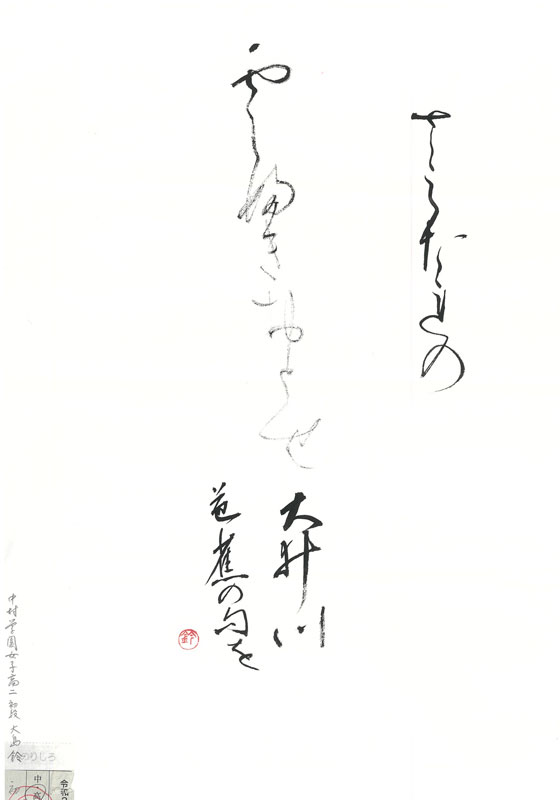 さみたれの
雲ふきおとせ
大井川
芭蕉の句を
鈴
中村学園女子高二 初段 大島 鈴
のりしろ